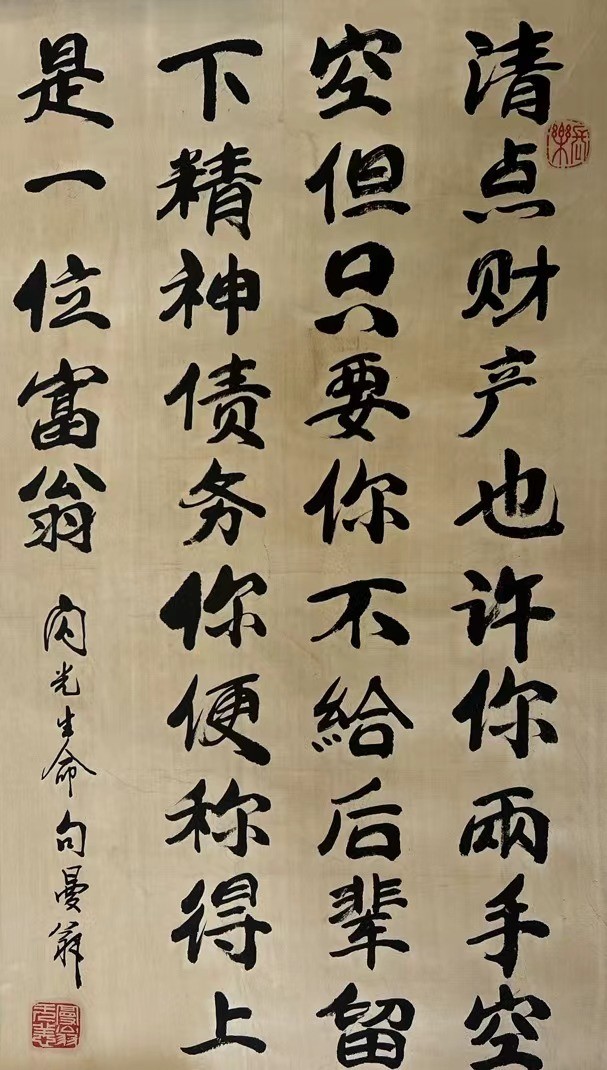 清点财产也许你兩手空
空但只要你不給后辈留
下精神债务你便称得上
是一位富翁
闪光生命句曼翁